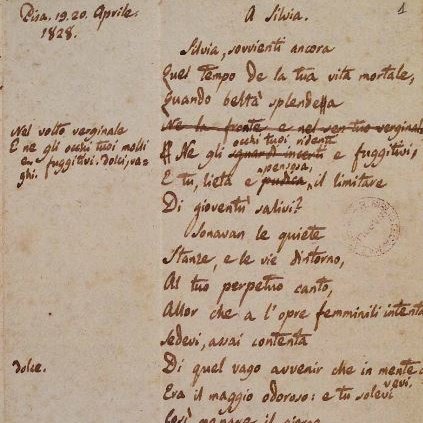 Pisa. 19. 20. Aprile.
1828.
A Silvia.
1
Silvia, sovvienti ancora
Quel tempo de la tua vita mortale,
Quando beltà splendea
Ne la fronte e nel sen tuo verginale
Nel volto verginale
E ne gli occhi tuoi molli
e fuggitivi. dolci, va-
ghi.
occhi tuoi ridenti
Ne gli sguardi incerti e fuggitivi,
pensosa,
E tu, lieta e pudica, il limitare
Di gioventù salivi?
Sonavan le quiete
Stanze, e le vie dintorno,
Al tuo perpetuo canto,
Allor che a l'opre femminili intenta
Sedevi, assai contenta
dolce.
Di quel vago avvenir che in mente
avevi.
Era il maggio odoroso: e tu solevi
Così menare il giorno